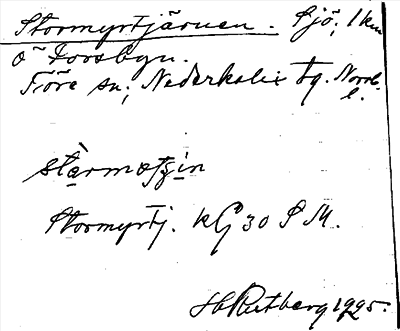 Stormyrtjärnen. Sjö, 1 km
ö Forsbyn.
Töre sn; Nederkalix tg. Norrb.
l.
Stormyrtj. KG 30 S M.
H Rutberg 1925.